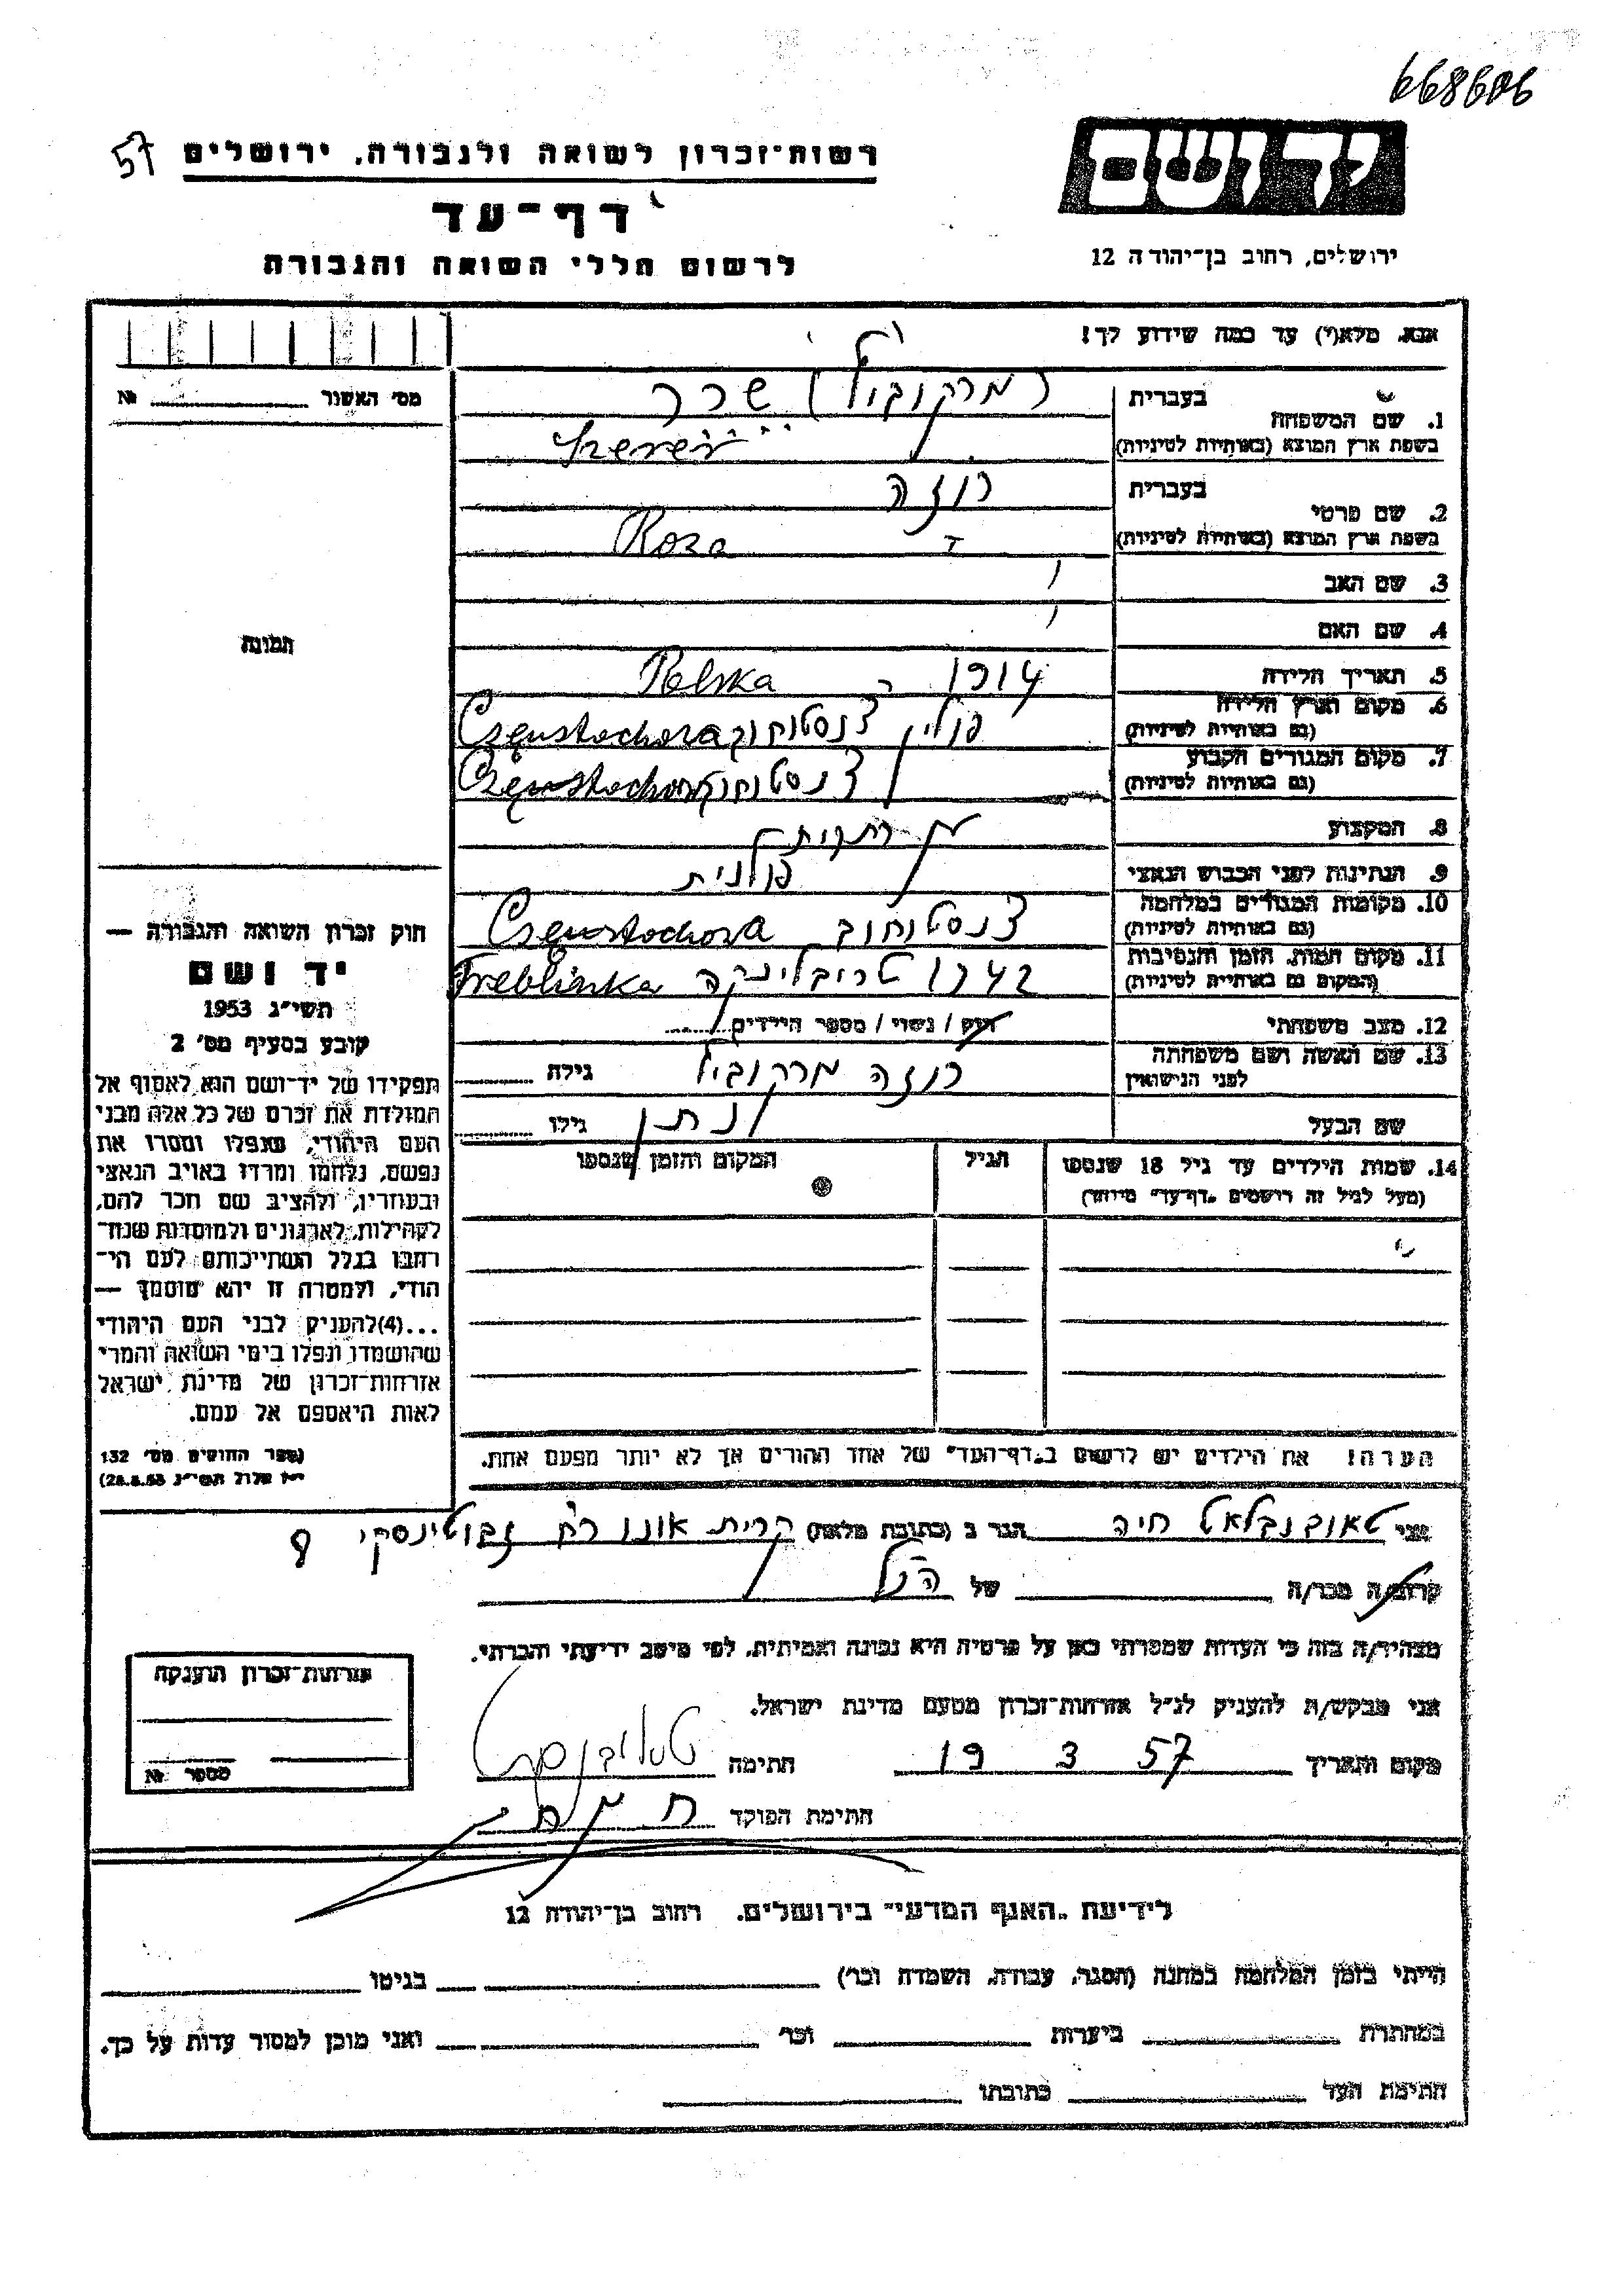 668606
57 רשות־זכרון לשואה ולגבורה, ירושלים
יד ושם
דף־עד
ירושלים, רחוב בן־יהודה 12
לרשום חללי השואה והגבורה
אנא, מלא(י) עד כמה שידוע לך!
מס' האשור №
1. שם המשפחה בעברית (מרקוביץ) שרר
בשפת ארץ המוצא (באותיות לטיניות)
2. שם פרטי בעברית רוזה
בשפת ארץ המוצא (באותיות לטיניות) Roza
3. שם האב
4. שם האם
תמונה
5. תאריך הלידה 1914 Polska
6. מקום וארץ הלידה (גם באותיות לטיניות) פולין צ'נסטוחוב Czenstochova
7. מקום המגורים הקבוע (גם באותיות לטיניות) צ'נסטוחוב Czenstochova
8. המקצוע
9. הנתינות לפני הכבוש הנאצי פולנית
10. מקומות המגורים במלחמה (גם באותיות לטיניות) צ'נסטוחוב Czenstochova
11. מקום המות, הזמן והנסיבות (המקום גם באותיות לטיניות) 1942 טריבלינקה Treblinka
12. מצב משפחתי רווק / נשוי / מספר הילדים
13. שם האשה ושם משפחתה לפני הנישואין רוזה מרקוביץ גילה
שם הבעל נתן גילו
14. שמות הילדים עד גיל 18 שנספו הגיל המקום והזמן שנספו
(מעל לגיל זה רושמים „דף־עד" מיוחד)
חוק זכרון השואה והגבורה —
יד ושם
תשי"ג 1953
קובע בסעיף מס' 2
תפקידו של יד־ושם הוא לאסוף אל
המולדת את זכרם של כל אלה מבני
העם היהודי, שנפלו ומסרו את
נפשם, נלחמו ומרדו באויב הנאצי
ובעוזריו, ולהציב שם וזכר להם,
לקהילות, לארגונים ולמוסדות שנח־
רבו בגלל השתייכותם לעם הי־
הודי, ולמטרה זו יהא מוסמך —
...(4) להעניק לבני העם היהודי
שהושמדו ונפלו בימי השואה והמרי
אזרחות־זכרון של מדינת ישראל
לאות היאספם אל עמם.
(ספר החוקים מס' 132
י"ז אלול תשי"ג 28.8.53)
הערה! את הילדים יש לרשום ב„דף־העד" של אחד ההורים אך לא יותר מפעם אחת.
אני טאובנבלאט חיה הגר ב (כתובת מלאה) קרית אונו רח' זבוטינסקי 9
קרוב/ה מכר/ה של הנ"ל
מצהיר/ה בזה כי העדות שמסרתי כאן על פרטיה היא נכונה ואמיתית, לפי מיטב ידיעתי והכרתי.
אני מבקש/ת להעניק לנ"ל אזרחות־זכרון מטעם מדינת ישראל.
אזרחות־זכרון הוענקה
מספר №
מקום ותאריך 19 3 57 חתימה
חתימת הפוקד
לידיעת „האגף המדעי" בירושלים, רחוב בן־יהודה 12
הייתי בזמן המלחמה במחנה (הסגר, עבודה, השמדה וכו') בגיטו
במחתרת ביערות וכו' ואני מוכן למסור עדות על כך.
חתימת העד כתובתו